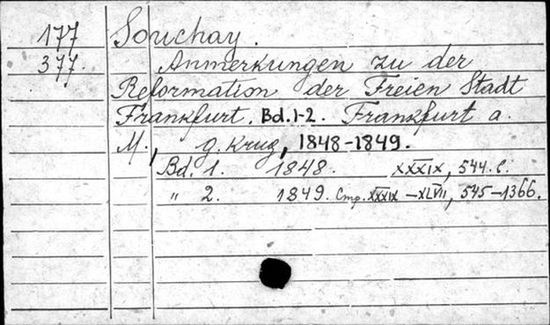 177 Souchay.
377. Anmerkungen zu der
Reformation der Freien Stadt
Frankfurt. Bd. 1-2. Frankfurt a.
M., G. Krug, 1848-1849.
Bd. 1. 1848. XXXIX, 544. c.
„ 2. 1849. Стр. XXXIX-XLVII, 545-1366.